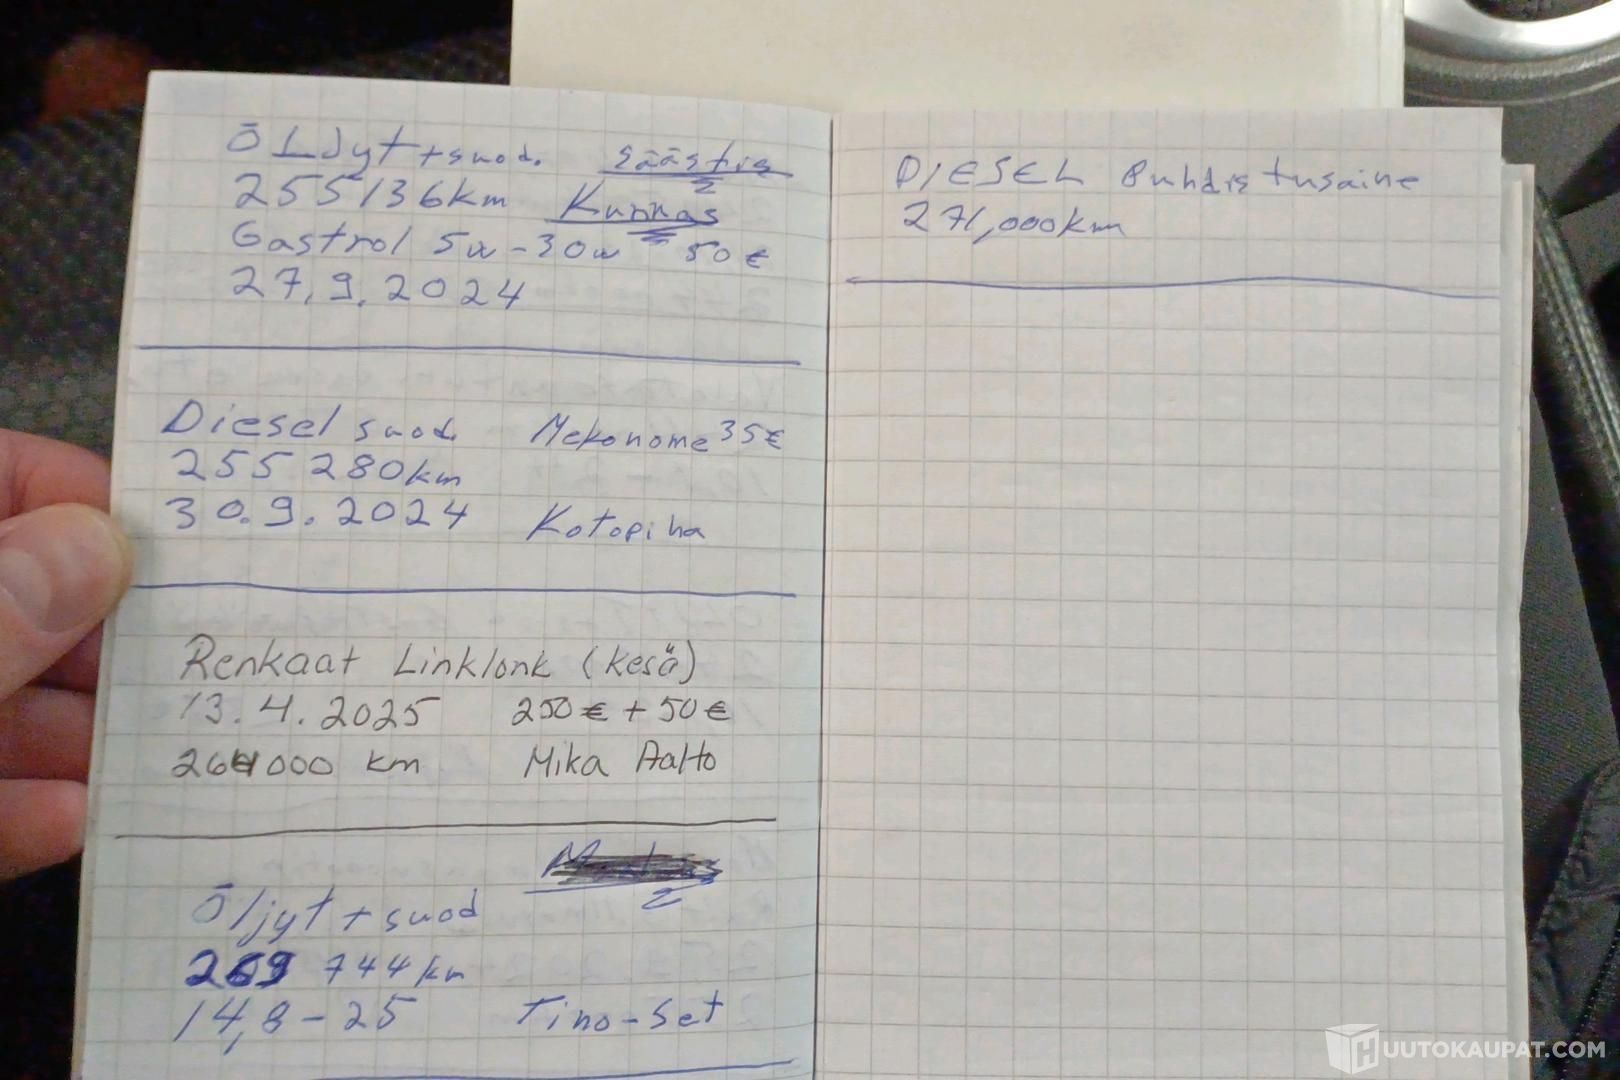 Öljyt + suod. Säästis
255136km Kunnas
Gastrol 5w-30w 50€
27.9.2024
Diesel suod. Mekonome 35€
255 280km
30.9.2024 Kotopiha
Renkaat Linklonk (kesä)
13.4.2025 250€ + 50€
264000 km Mika Aalto
Öljyt + suod
269 744km
14,8-25 Tino-Set
DIESEL Puhdistusaine
271,000km
HUUTOKAUPAT.COM